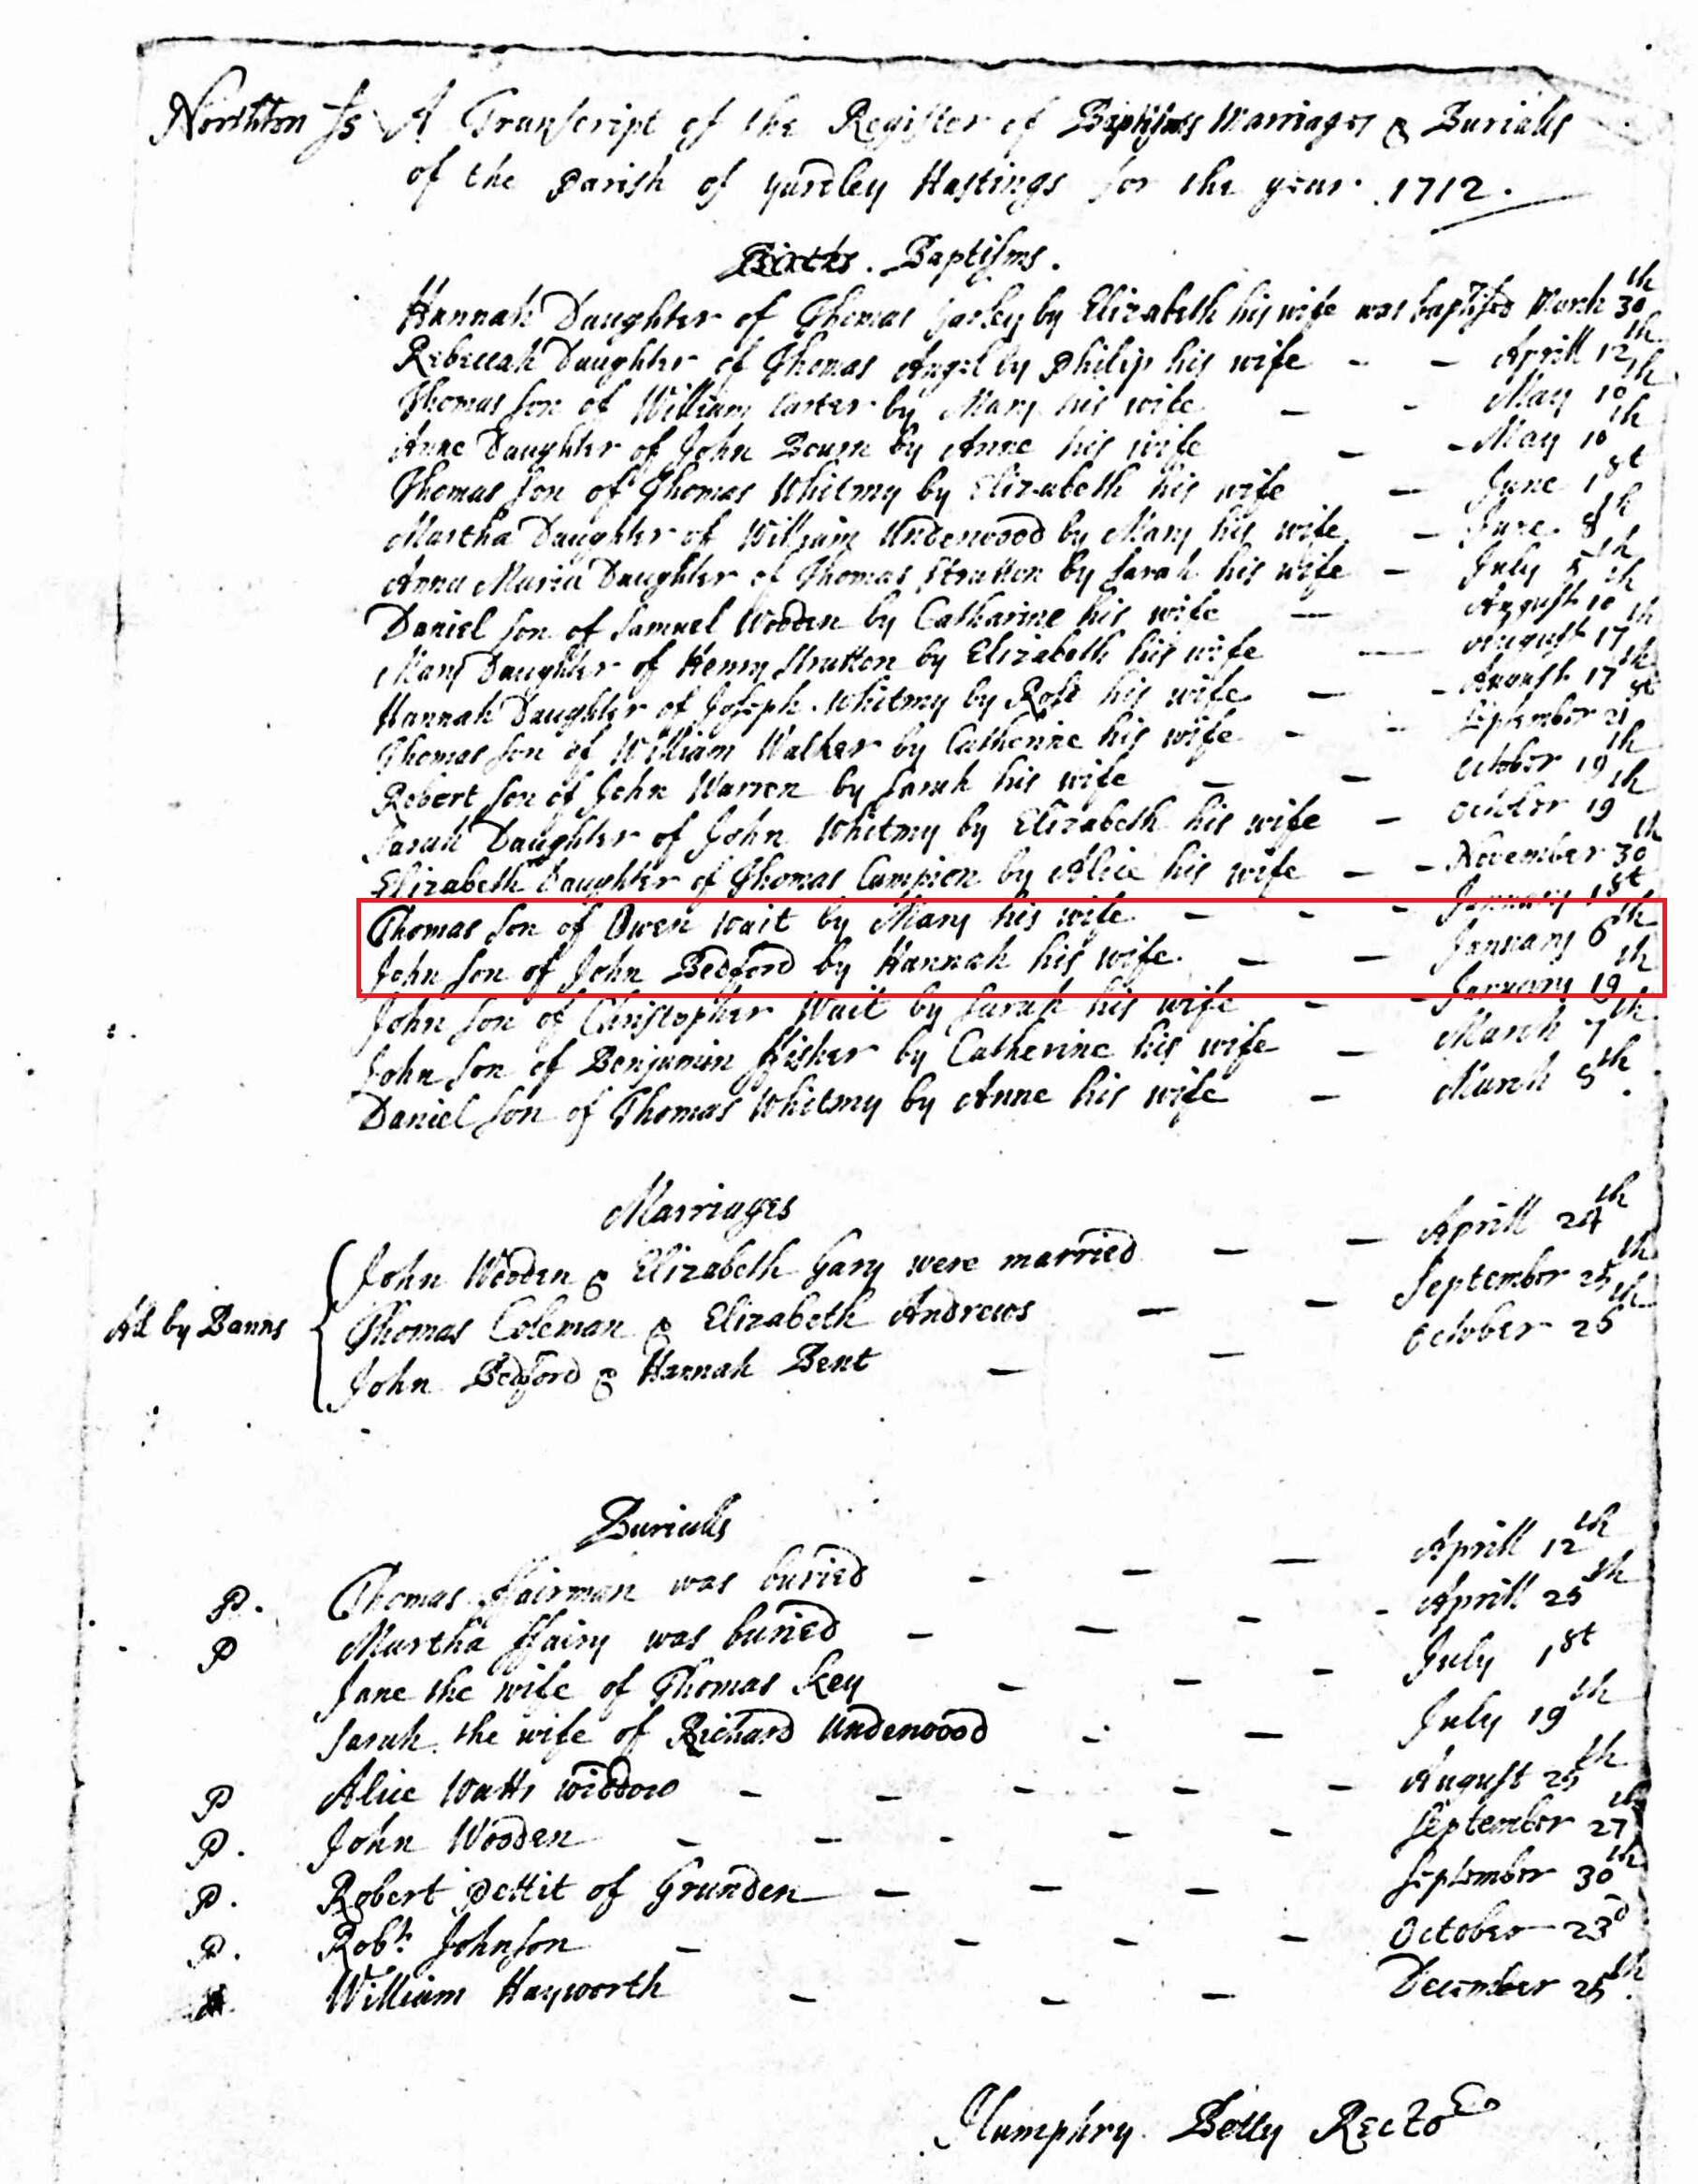 Northton Ss A Transcript of the Register of Baptisms Marriages & Burialls
of the Parish of Yardley Hastings for the year 1712.
Births. Baptisms.
Hannah Daughter of Thomas by Elizabeth his wife was baptised March 30th
Rebeccah Daughter of Thomas Angel by Philip his wife - - Aprill 12th
Thomas son of William Carter by Mary his wife - - May 10th
Anne Daughter of John Bourn by Anne his wife - - May 10th
Thomas son of Thomas Whitmy by Elizabeth his wife - June 1st
Martha Daughter of William Underwood by Mary his wife - June 8th
Anna Maria Daughter of Thomas Strutton by Sarah his wife - July 5th
Daniel son of Samuel Wooden by Catharine his wife - August 10th
Mary Daughter of Henry Strutton by Elizabeth his wife - August 17th
Hannah Daughter of Joseph Whitmy by Rose his wife - - August 17th
Thomas son of William Walker by Catherine his wife - - September 21st
Robert son of John Warren by Sarah his wife - - October 19th
Sarah Daughter of John Whitmy by Elizabeth his wife - October 19th
Elizabeth Daughter of Thomas Campion by Alice his wife - - November 30th
Thomas son of Owen Wait by Mary his wife - - - January 1st
John son of John Bedford by Hannah his wife. - - January 6th
John son of Christopher Wait by Sarah his wife - - January 19th
John son of Benjamin ffisher by Catherine his wife - March 7th
Daniel son of Thomas Whitmy by Anne his wife - March 8th.
Marriages
All by Banns
John Wooden & Elizabeth Gary were married - - Aprill 24th
Thomas Coleman & Elizabeth Andrews - - September 25th
John Bedford & Hannah Bent - - October 26th
Burialls
P. Thomas ffairman was buried - - - Aprill 12th
P Martha ffairy was buried - - - - Aprill 25th
Jane the wife of Thomas Key - - - July 1st
Sarah the wife of Richard Underwood - - July 19th
P Alice Watts widdow - - - - - August 25th
P. John Wooden - - - - - September 27th
P. Robert Pettit of Grunden - - - September 30th
P. Robt. Johnson - - - - October 23d
William Hayworth - - - December 25th.
Humphry Betty Rector